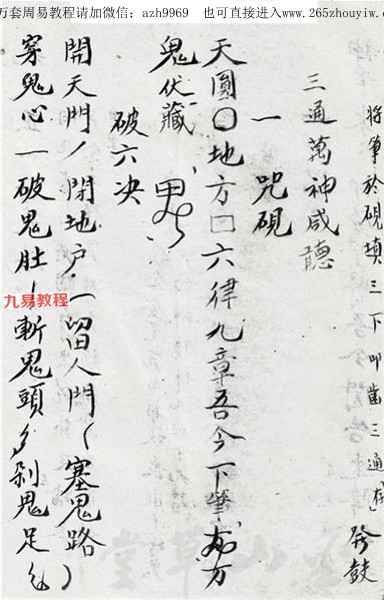 万套周易教程请加微信:azh9969 也可直接进入www.265zhouyiw.c
将筆於硯填三下叩齒三通
鼓
三通萬神咸聽
一咒硯
天圓〇地方口六律九章吾今下筆万
鬼伏藏
破六决
開天門丿閉地户一留人門㇏塞鬼路)
穿鬼心一破鬼肚丨斬鬼頭剁鬼足
九易教程
山草堂